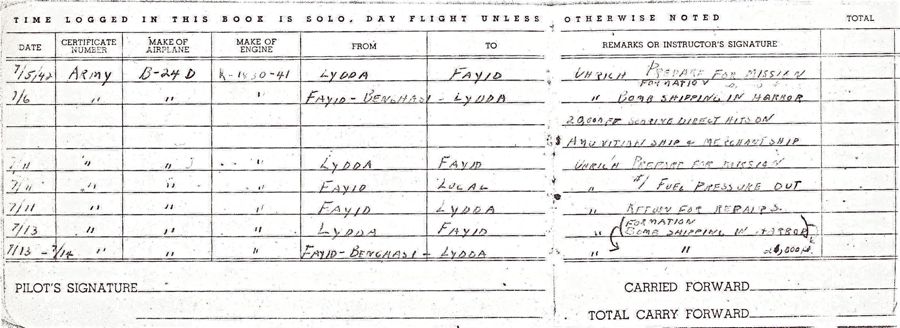 TIME LOGGED IN THIS BOOK IS SOLO, DAY FLIGHT UNLESS OTHERWISE NOTED TOTAL
DATE CERTIFICATE NUMBER MAKE OF AIRPLANE MAKE OF ENGINE FROM TO REMARKS OR INSTRUCTOR'S SIGNATURE
7/5/42 ARMY B-24 D R-1830-41 LYDDA FAYID UHRICH PREPARE FOR MISSION
FORMATION
7/6 " " " FAYID-BENGHASI - LYDDA " BOMB SHIPPING IN HARBOR
20,000 FT DIRECT HITS ON
SHIP & MERCHANT SHIP
7/11 " " " LYDDA FAYID UHRICH PREPARE FOR MISSION
7/11 " " " FAYID LOCAL " #1 FUEL PRESSURE OUT
7/11 " " " FAYID LYDDA " RETURN FOR REPAIRS.
FORMATION
7/13 " " " LYDDA FAYID " BOMB SHIPPING IN HARBOR
7/13 - 7/14 " " " FAYID-BENGHASI - LYDDA " "
PILOT'S SIGNATURE CARRIED FORWARD
TOTAL CARRY FORWARD